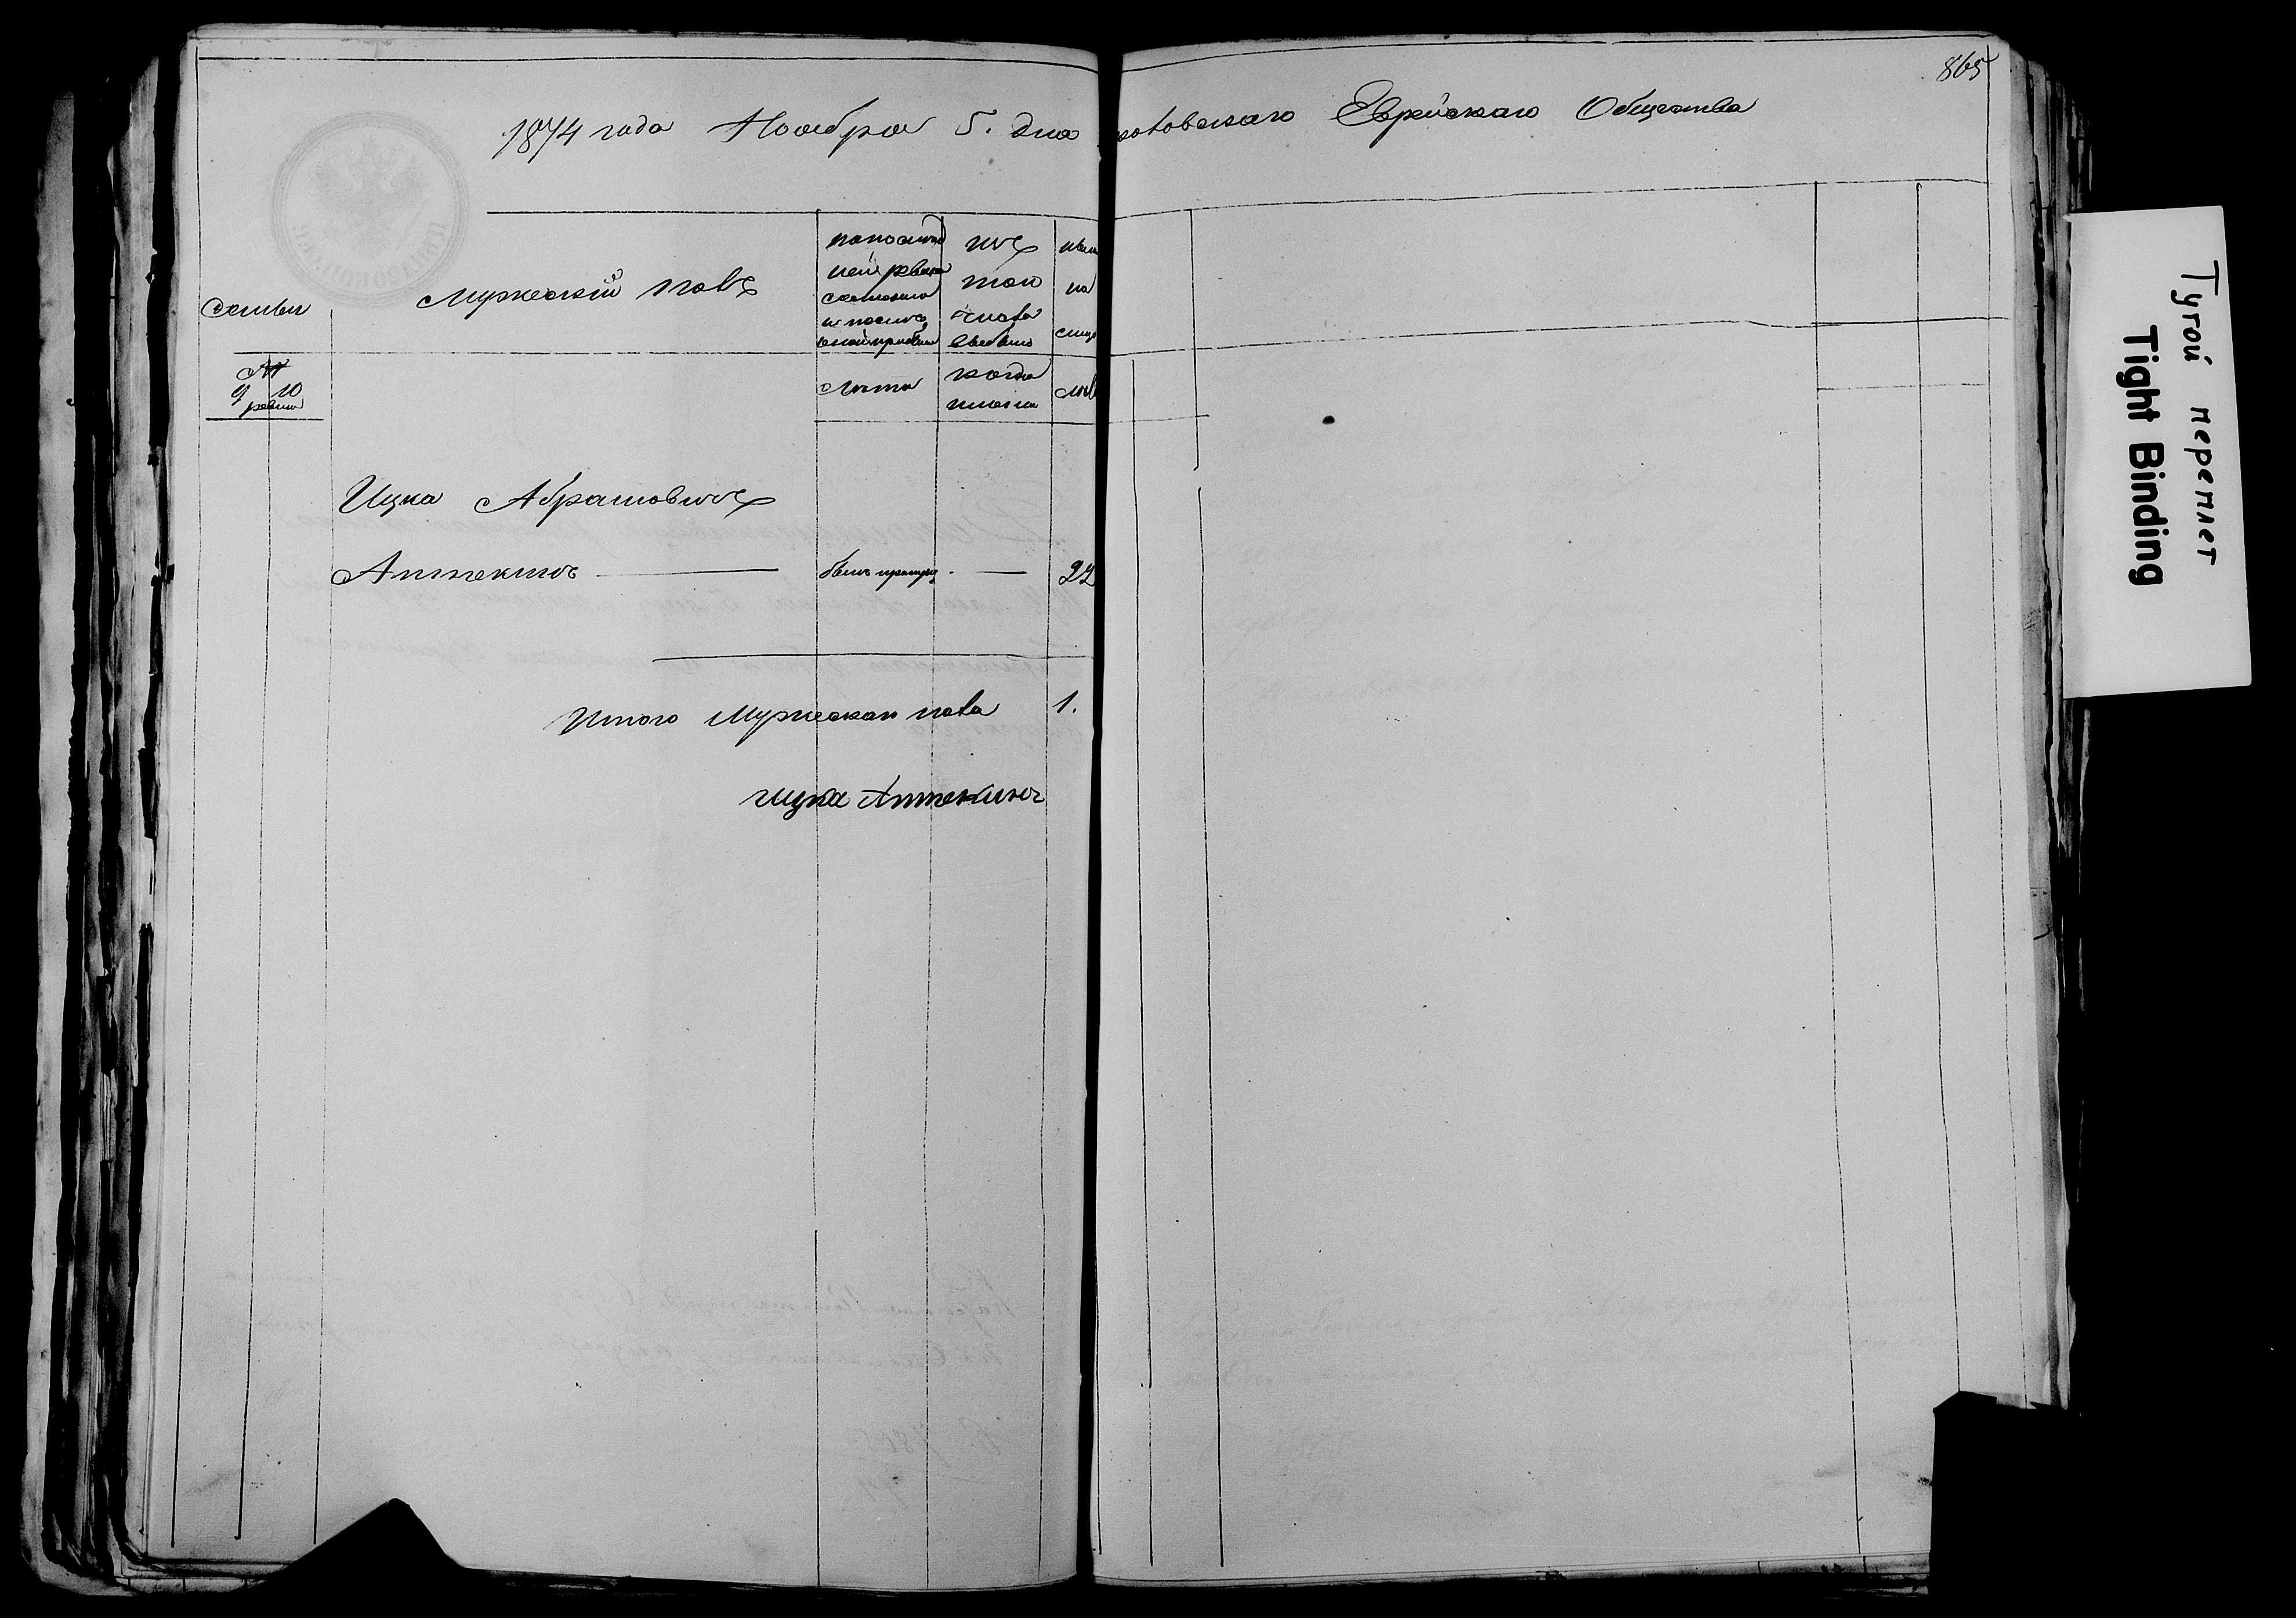 865
1874 года Ноября 5. дня котовскаго Еврейскаго Общества
Семьи
Мужескій полъ
по послѣд
ней ревизіи
состояло
и послѣ
оной прибыло
изъ
того
числа
выбыло
нынѣ
на
лицо
№
9 10
ревизіи
лѣта
когда
именно
лѣ
Ицка Абрамовичъ
Аптекинъ
былъ пропущ.
22
Итого Мужескаго пола 1.
ицка Аптекинъ
Тугой переплет
Tight Binding